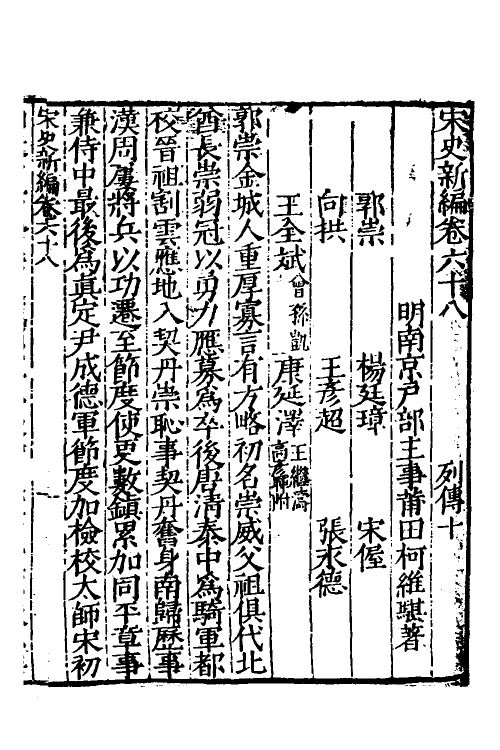 宋史新編卷六十八 列傳十
明南京戶部主事莆田柯維騏著
郭崇 楊廷璋 宋偓
向拱 王彥超 張永德
王全斌 曾孫凱 康延澤 王繼濤 高彥暉附
郭崇金城人重厚寡言有方略初名崇威父祖俱代北
酋長崇弱冠以勇力應募爲卒後唐清泰中爲騎軍都
校晉祖割雲應地入契丹崇恥事契丹奮身南歸歷事
漢周屢將兵以功遷至節度使更數鎮累加同平章事
兼侍中最後爲真定尹成德軍節度加檢校太師宋初
宋史新編卷六十八
一